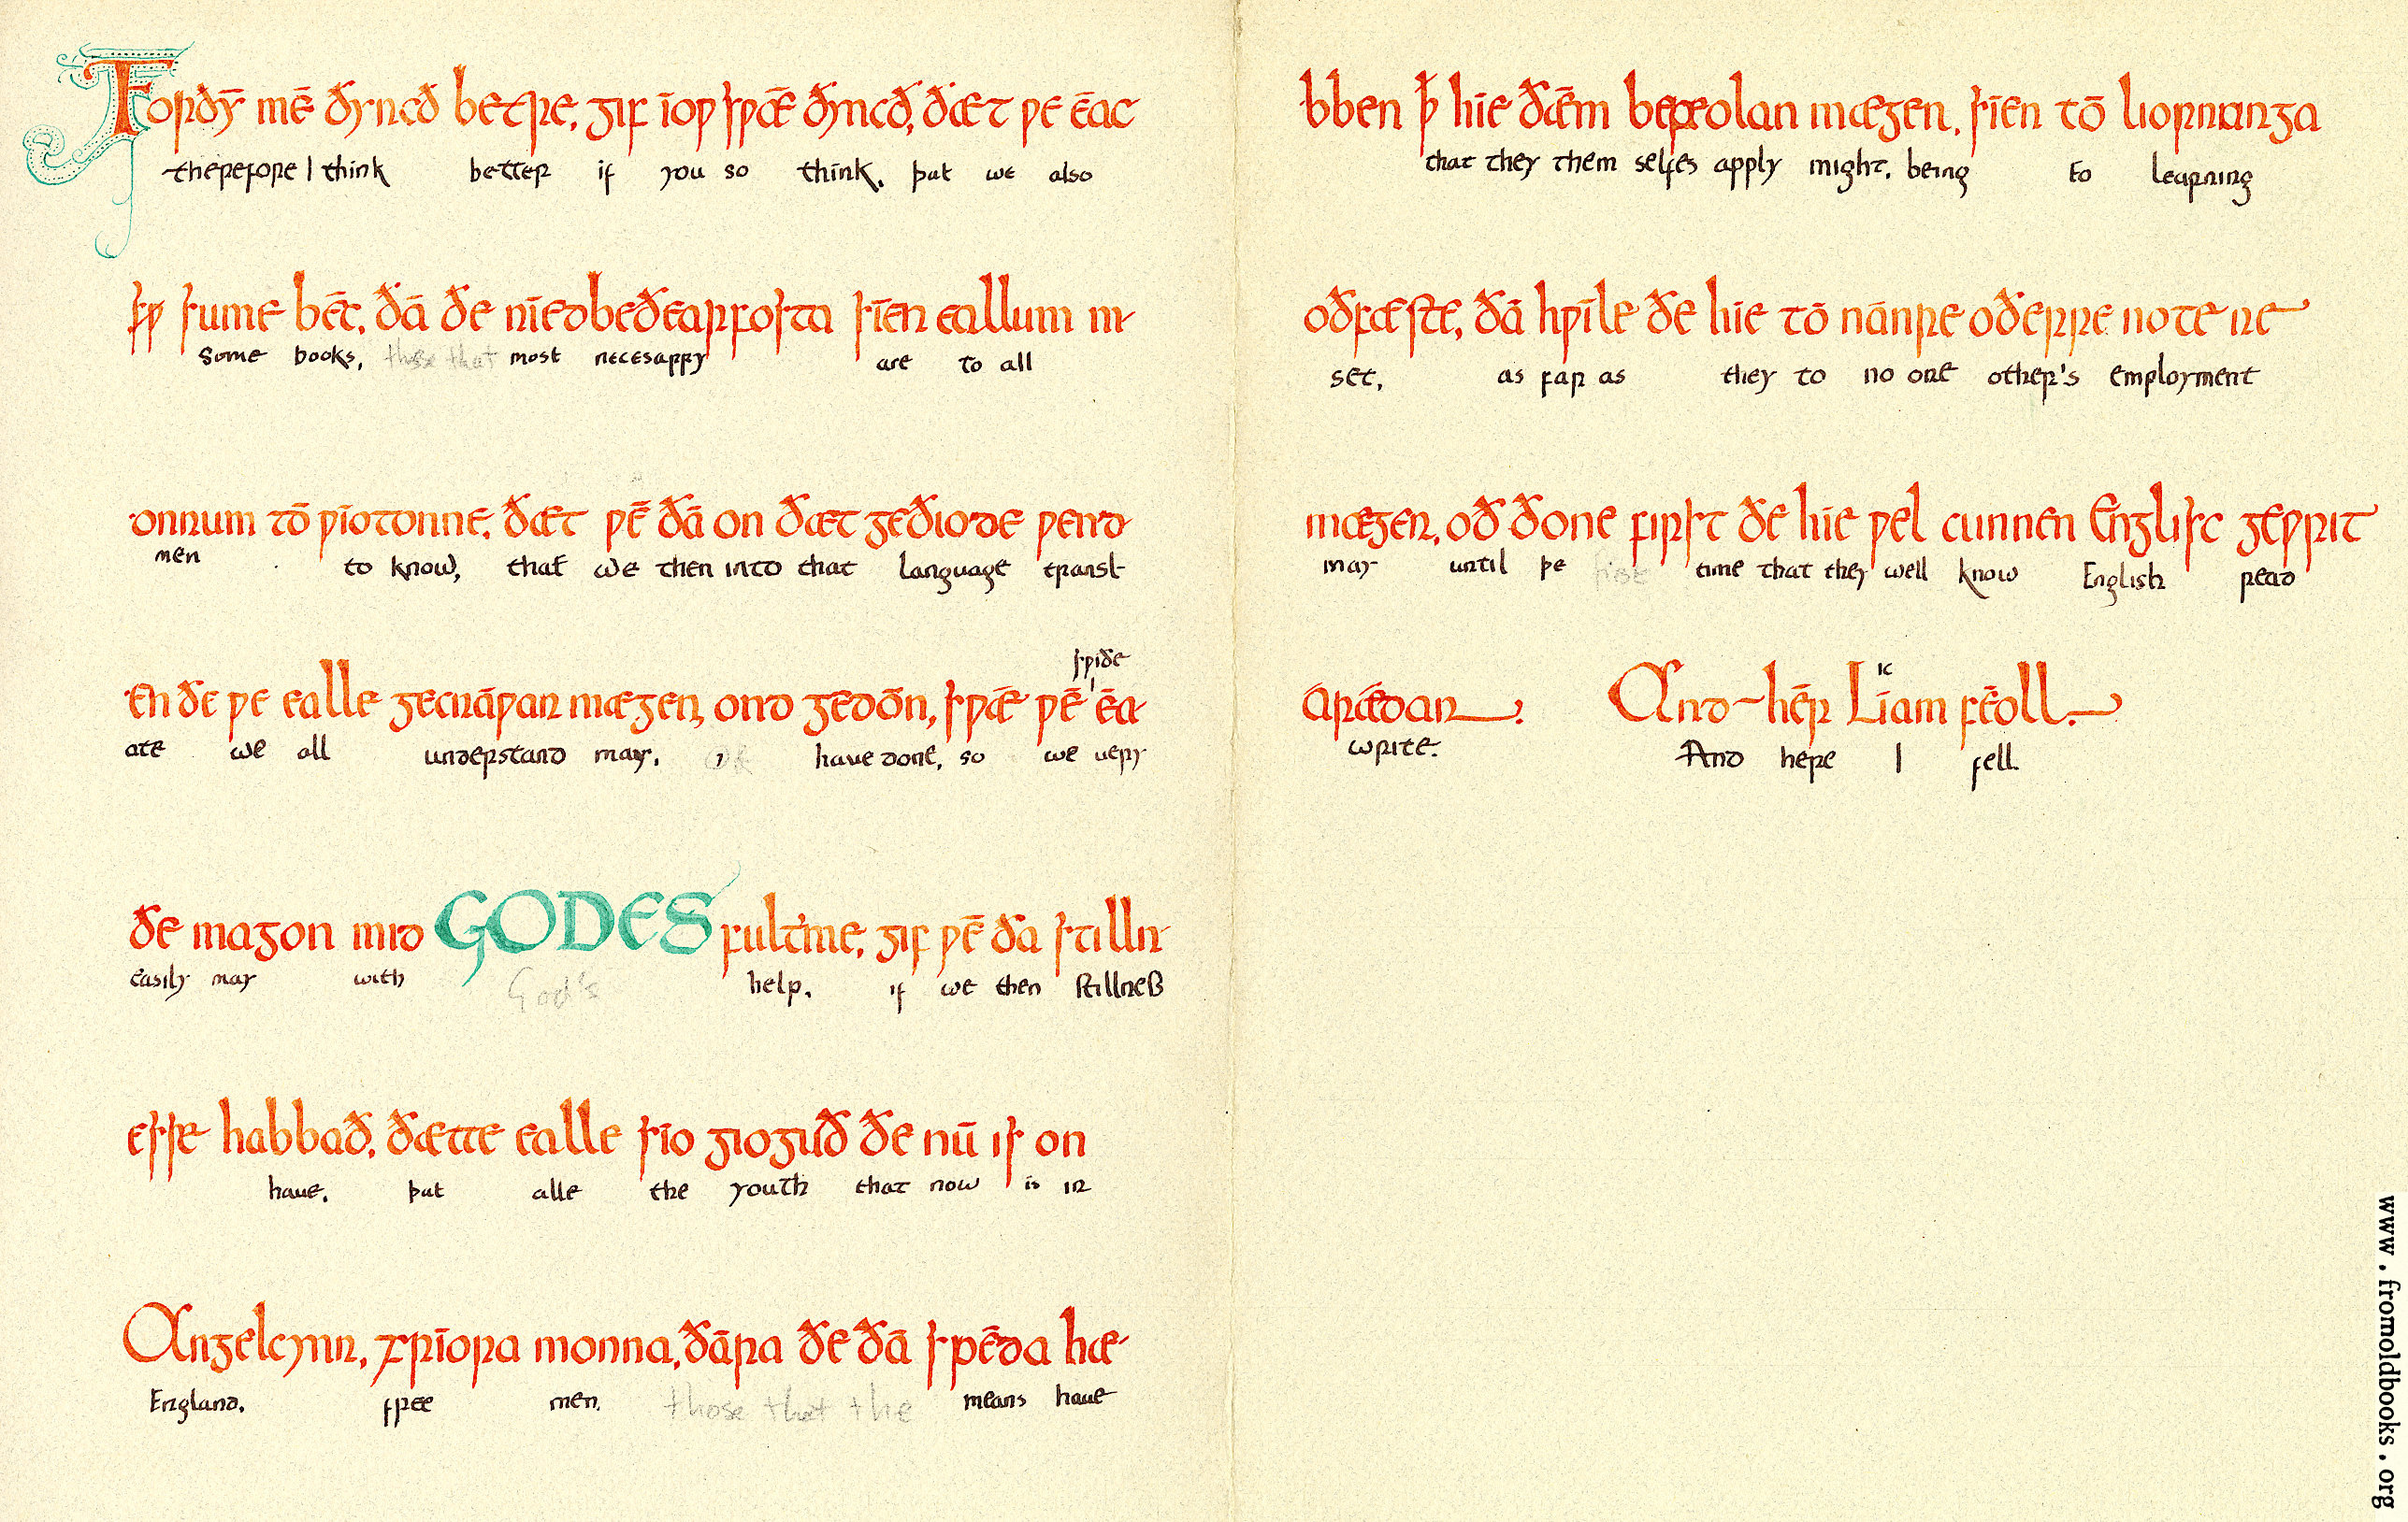 Forðȳ mē ðyncð betre, ᵹif īoƿ sƿǣ ðyncð, ðæt ƿe ēac
therefore I think better if you so think, þat we also
sume bēc, ðā ðe nīedbeðearfosta sīen eallum m-
some books, those that most necesarry are to all
onnum tō ƿiotonne, ðæt ƿē ðā on ðæt ᵹeðiode ƿend
men to know, that we then into that language transl-
sƿiðe
en ðe ƿe ealle ᵹecnāƿan mæᵹen, ond ᵹedōn, sƿǣ ƿē ēa-
ate we all understand may, ⁊ have done, so we very
ðe maᵹon mid GODES fultme, ᵹif ƿē ðā stilln-
easily may with God's help, if we then stillneß
esse habbað, ðætte ealle sīo ᵹioᵹuð ðe nū is on
have, þat alle the youth that now is in
Anᵹelcynn, frīora monna, ðāra ðe ðā spēda hæ-
England, free men, those that the means have
bben ꝥ hīe ðǣm befeolan mæᵹen, sīen tō liornunᵹa
that they them selfes apply might, being to learning
oðfæste, ðā hƿīle ðe hīe tō nānre oðerre note ne
set, as far as they to no one other's employment
mæᵹen, oð ðone first ðe hīe ƿel cunnen Enᵹlisc ᵹeƿrit
may until þe first time that they well know English read
ic
ārǣdan. And hēr Līam fēoll.
write. And here I fell.
www.fromoldbooks.org